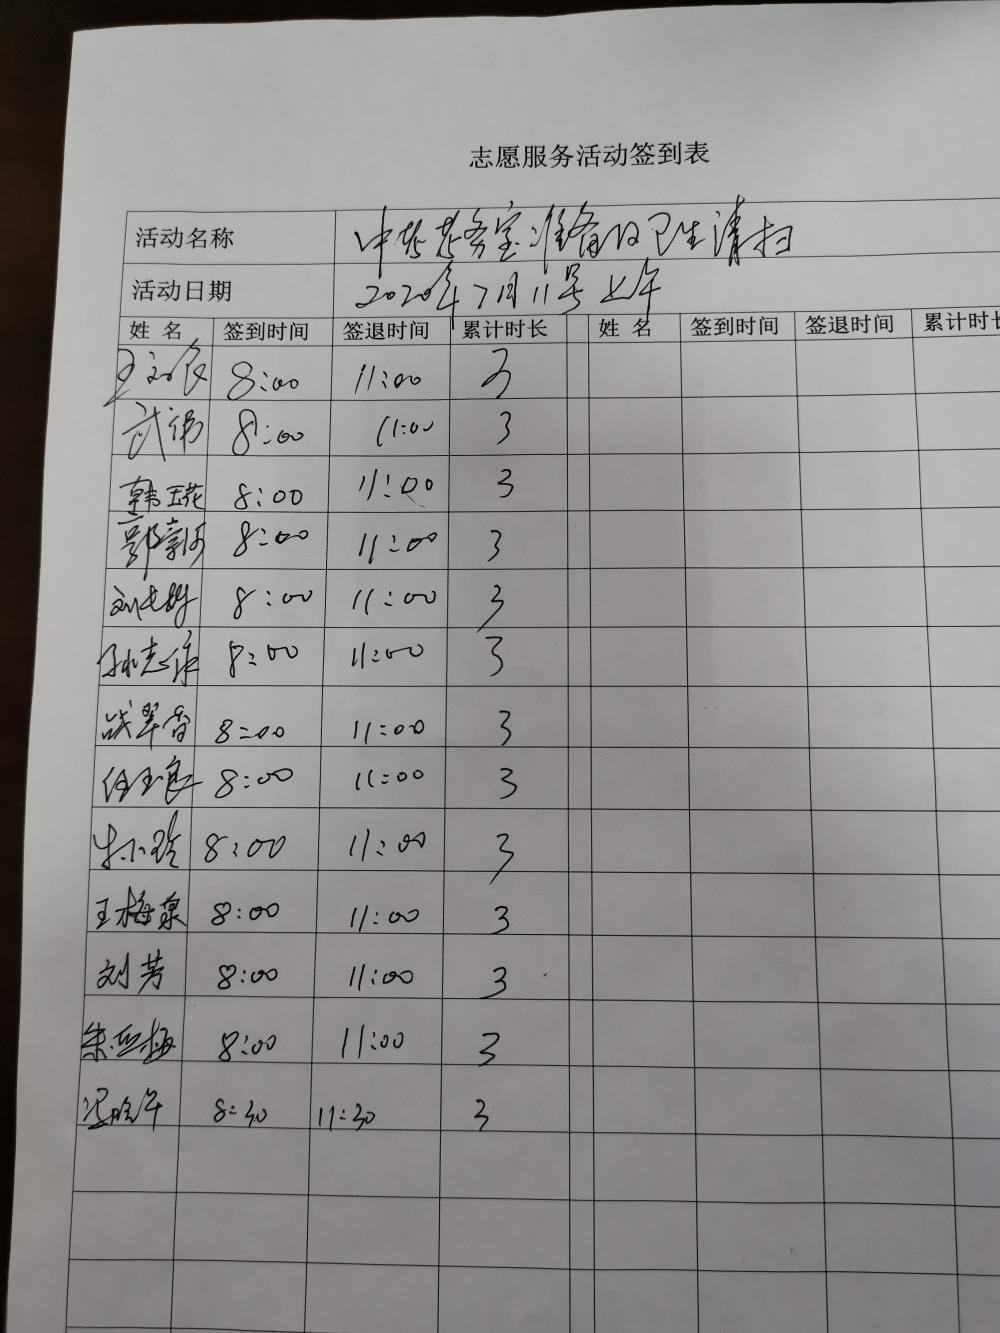 志愿服务活动签到表
活动名称 准备的卫生清扫
活动日期 2020年7月11号上午
姓 名 签到时间 签退时间 累计时长 姓 名 签到时间 签退时间 累计时长
8:00 11:00 3
武 8:00 11:00 3
韩玉花 8:00 11:00 3
郭 8:00 11:00 3
刘 8:00 11:00 3
孙志 8:00 11:00 3
战翠香 8:00 11:00 3
任玉良 8:00 11:00 3
8:00 11:00 3
王梅泉 8:00 11:00 3
刘芳 8:00 11:00 3
朱 梅 8:00 11:00 3
8:30 11:30 3